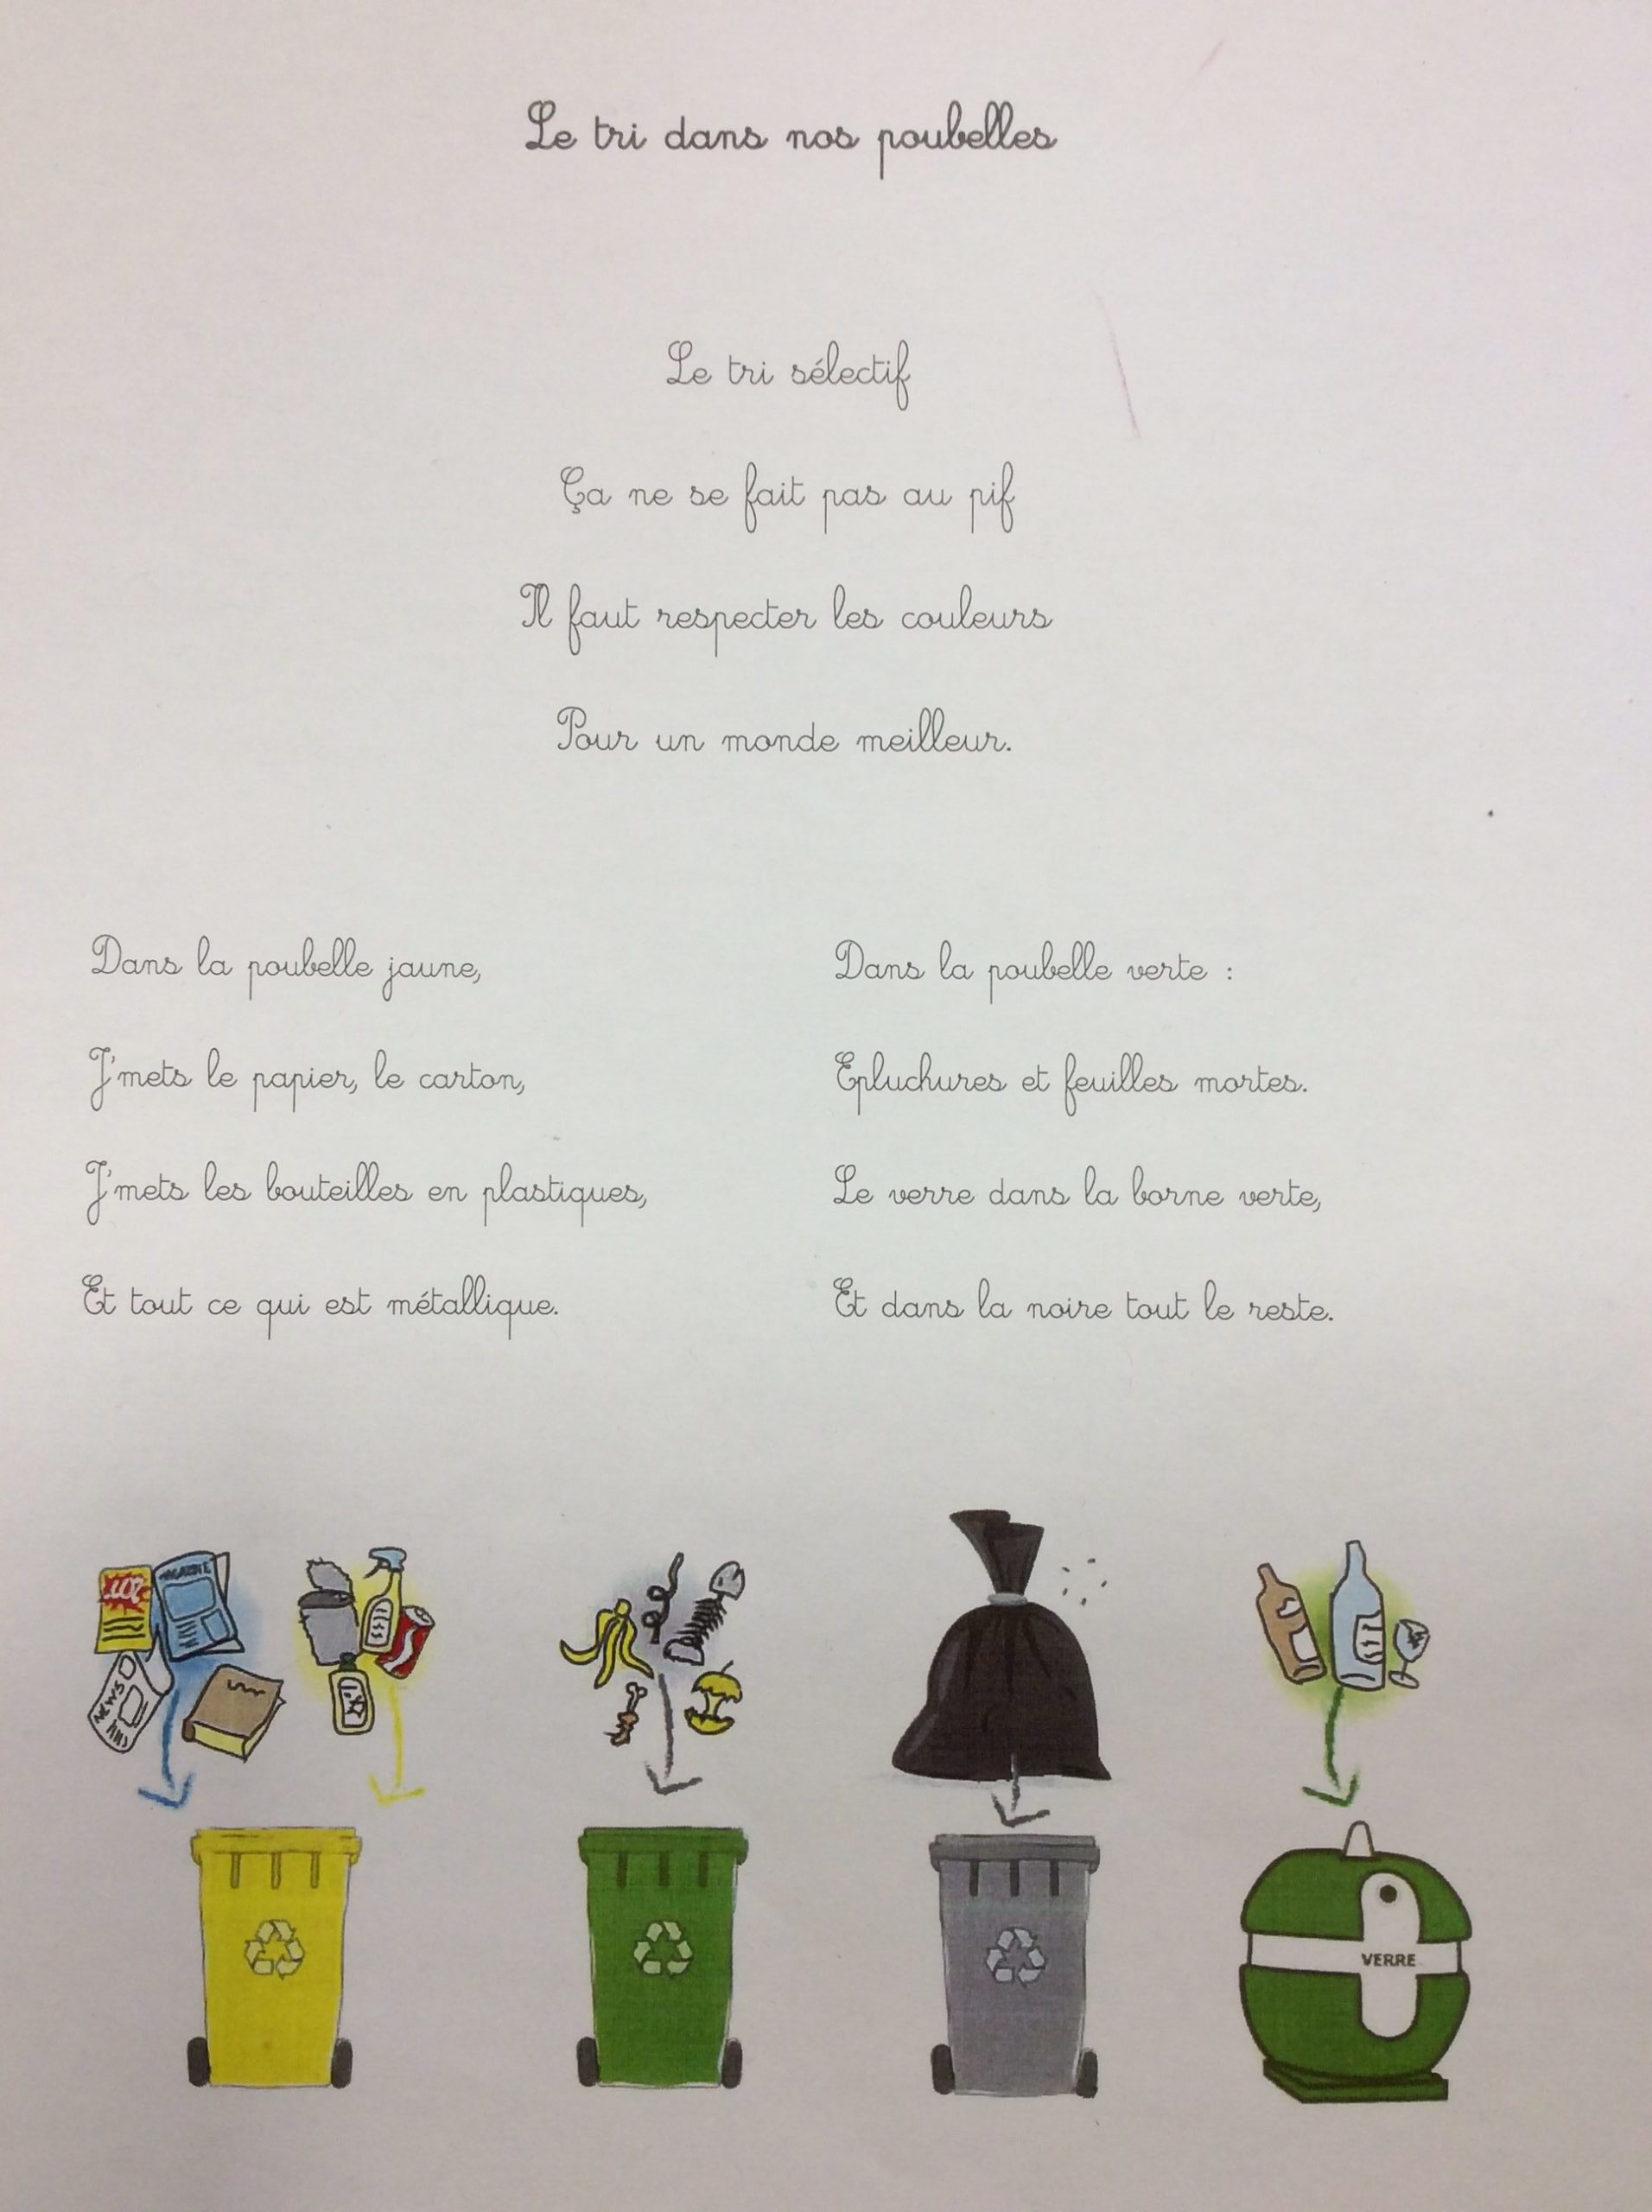 Le tri dans nos poubelles
Le tri sélectif
Ça ne se fait pas au pif
Il faut respecter les couleurs
Pour un monde meilleur.
Dans la poubelle jaune,
J'mets le papier, le carton,
J'mets les bouteilles en plastiques,
Et tout ce qui est métallique.
Dans la poubelle verte :
Epluchures et feuilles mortes.
Le verre dans la borne verte,
Et dans la noire tout le reste.
MAGAZINE
NEWS
VERRE